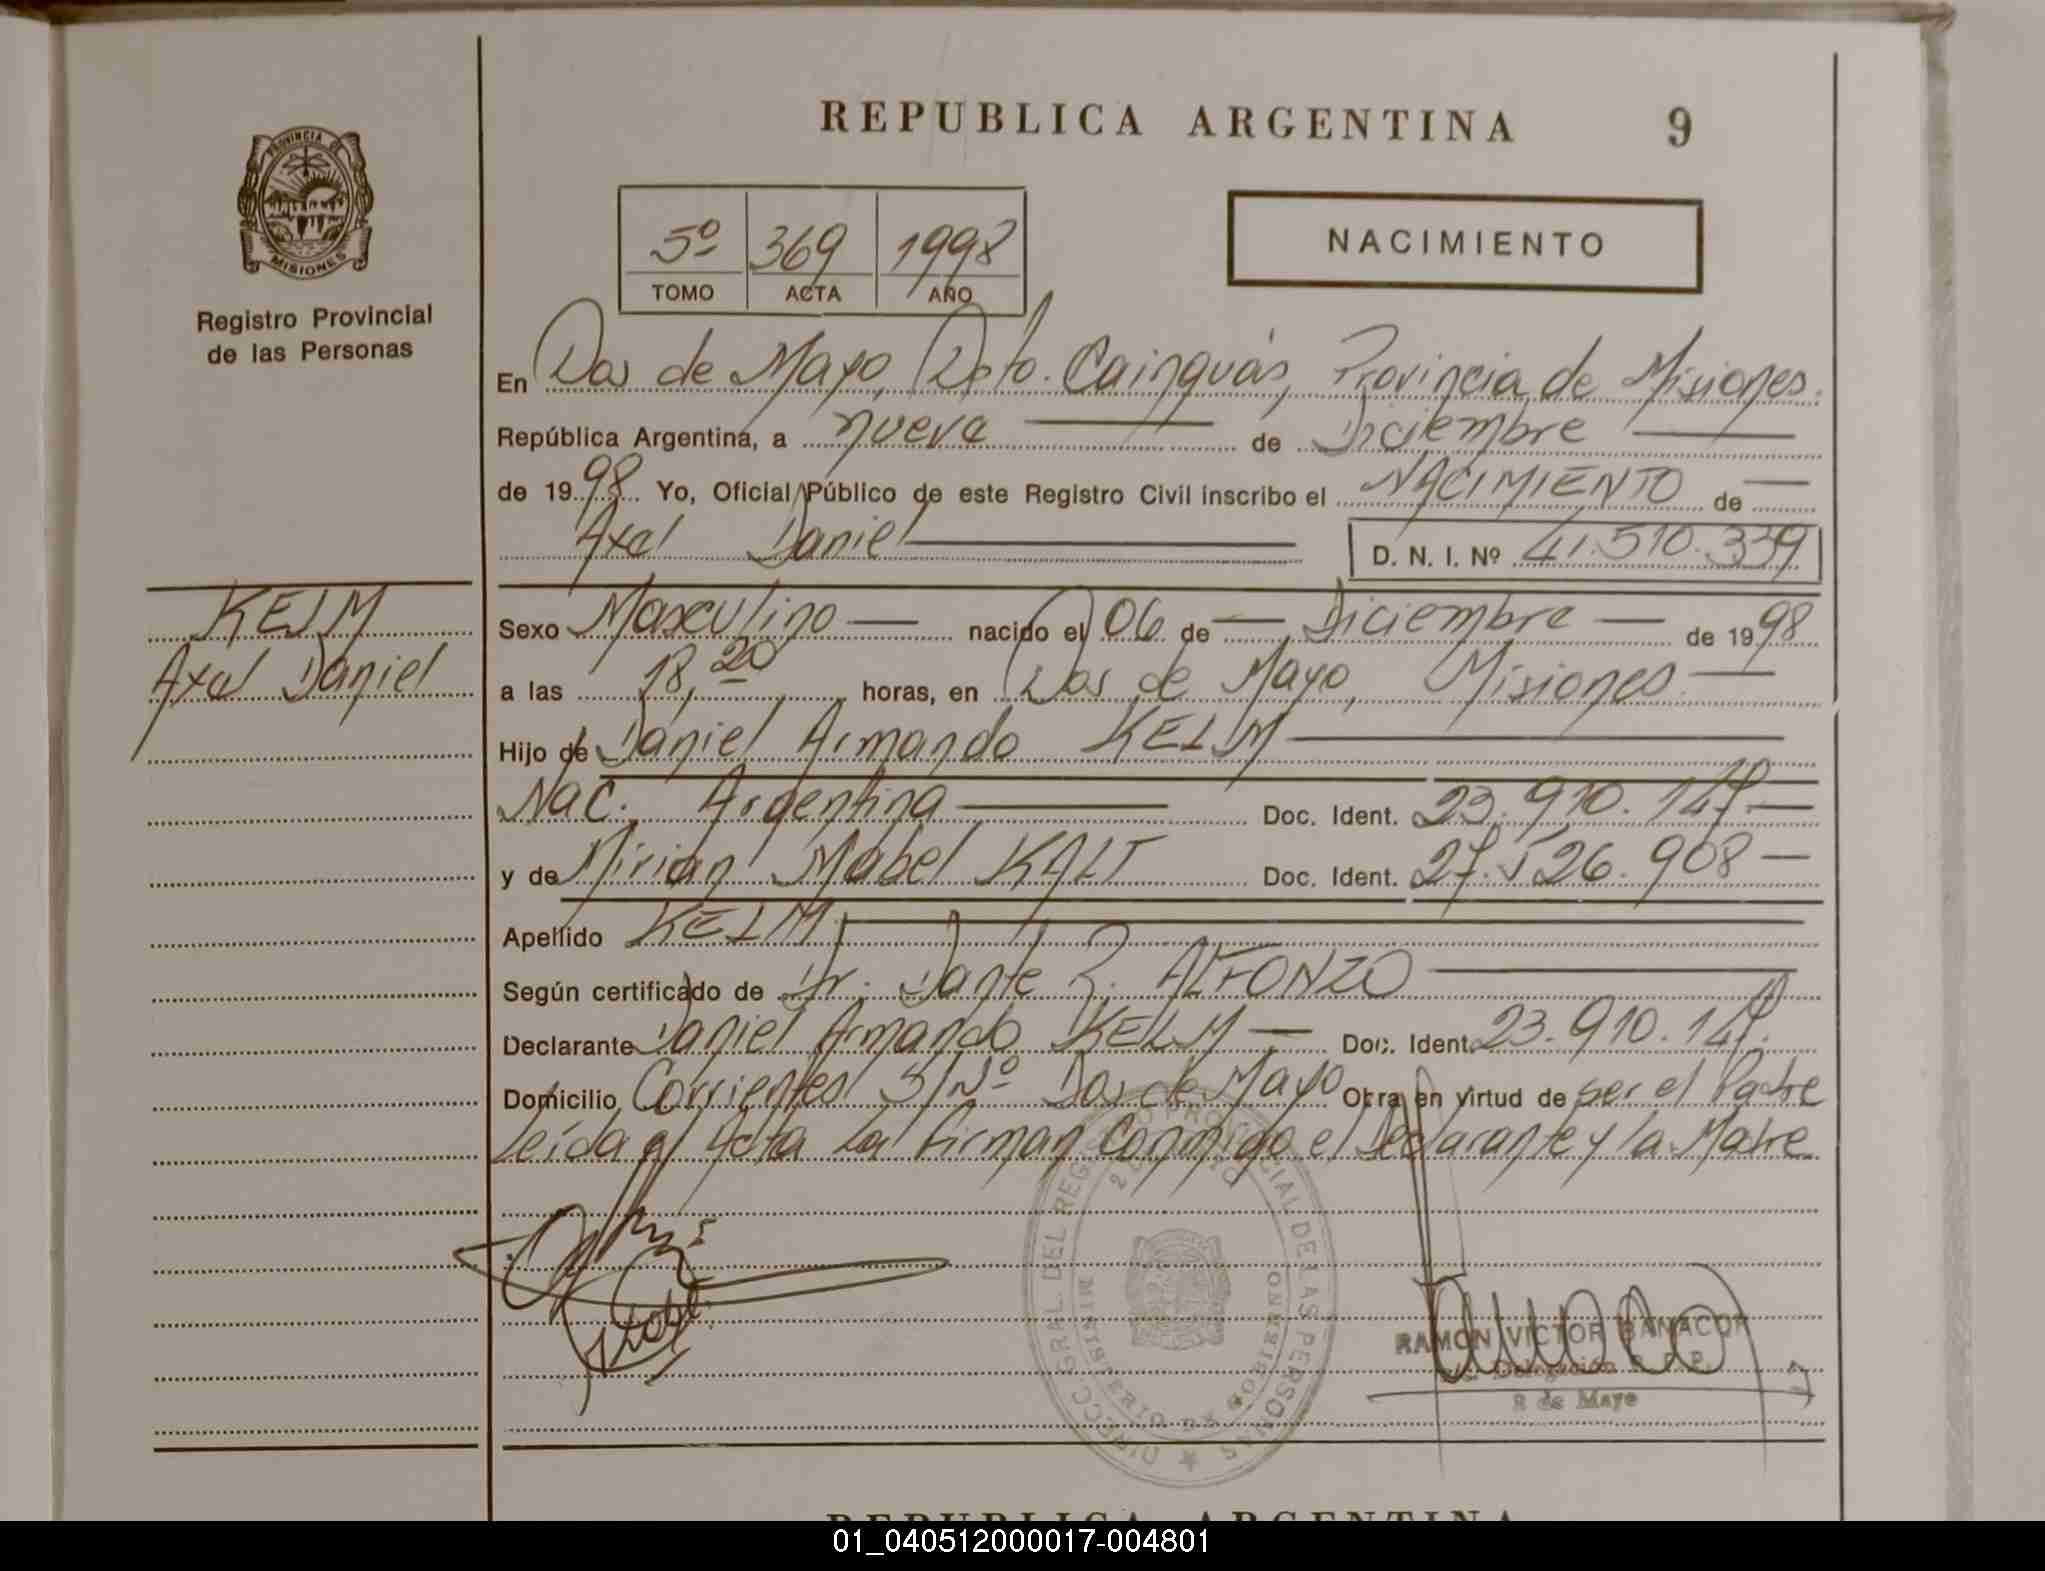 REPUBLICA ARGENTINA 9
PROVINCIA DE
MISIONES
Registro Provincial
de las Personas
5º 369 1998
TOMO ACTA AÑO
NACIMIENTO
En Dos de Mayo, Dpto. Cainguás, Provincia de Misiones.
República Argentina, a nueve de Diciembre
de 1998 Yo, Oficial Público de este Registro Civil inscribo el NACIMIENTO de
Axel Daniel D. N. I. Nº 41.510.339
KELM
Axel Daniel
Sexo Masculino nacido el 06 de Diciembre de 1998
a las 18,20 horas, en Dos de Mayo, Misiones
Hijo de Daniel Armando KELM
Nac. Argentina Doc. Ident. 23.910.147
y de Mirian Mabel KALT Doc. Ident. 27.526.908
Apellido KELM
Según certificado de Dr. Dante R. ALFONZO
Declarante Daniel Armando KELM Doc. Ident. 23.910.147.
Domicilio Corrientes S/Nº Dos de Mayo Obra en virtud de ser el Padre
Leída el Acta La firman Conmigo el Declarante y la Madre
DIRECC. GRAL. DEL REGISTRO PROVINCIAL DE LAS PERSONAS
MINISTERIO DE GOBIERNO
RAMON VICTOR
Delegación R. P. P.
2 de Mayo
REPUBLICA ARGENTINA
01_040512000017-004801